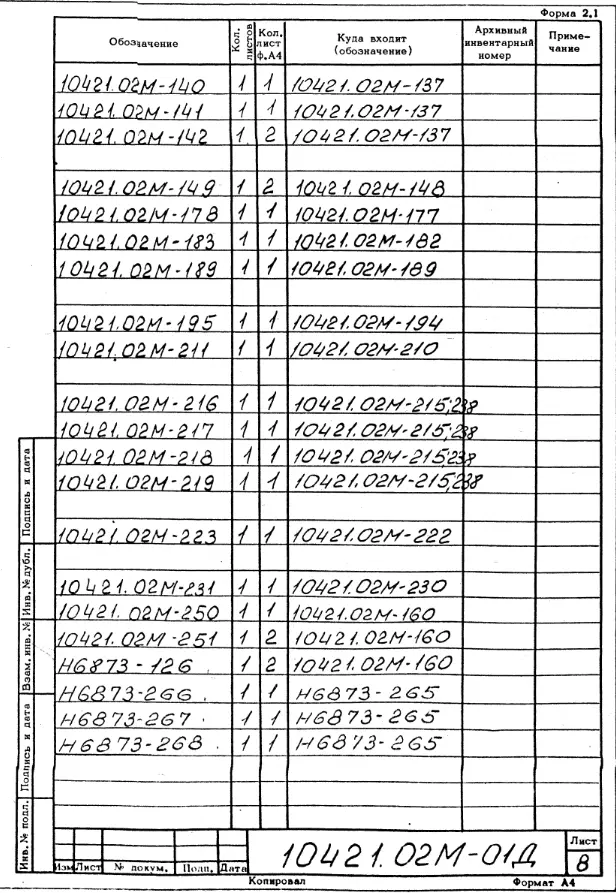 Форма 2.1
Обозначение Кол. листов Кол. лист ф.А4 Куда входит (обозначение) Архивный инвентарный номер Приме-чание
10421.02М-140 1 1 10421.02М-137
10421.02М-141 1 1 10421.02М-137
10421.02М-142 1 2 10421.02М-137
10421.02М-149 1 2 10421.02М-148
10421.02М-178 1 1 10421.02М-177
10421.02М-183 1 1 10421.02М-182
10421.02М-189 1 1 10421.02М-189
10421.02М-195 1 1 10421.02М-194
10421.02М-211 1 1 10421.02М-210
10421.02М-216 1 1 10421.02М-215;238
10421.02М-217 1 1 10421.02М-215;238
10421.02М-218 1 1 10421.02М-215;238
10421.02М-219 1 1 10421.02М-215;238
10421.02М-223 1 1 10421.02М-222
10421.02М-231 1 1 10421.02М-230
10421.02М-250 1 1 10421.02М-160
10421.02М-251 1 2 10421.02М-160
Н6873-126 1 2 10421.02М-160
Н6873-266 1 1 Н6873-265
Н6873-267 1 1 Н6873-265
Н6873-268 1 1 Н6873-265
Подпись и дата
Инв. № дубл.
Взам. инв. №
Подпись и дата
Инв. № подл.
Изм Лист № докум. Подп. Дата
10421.02М-01Д
Лист
8
Копировал Формат А4